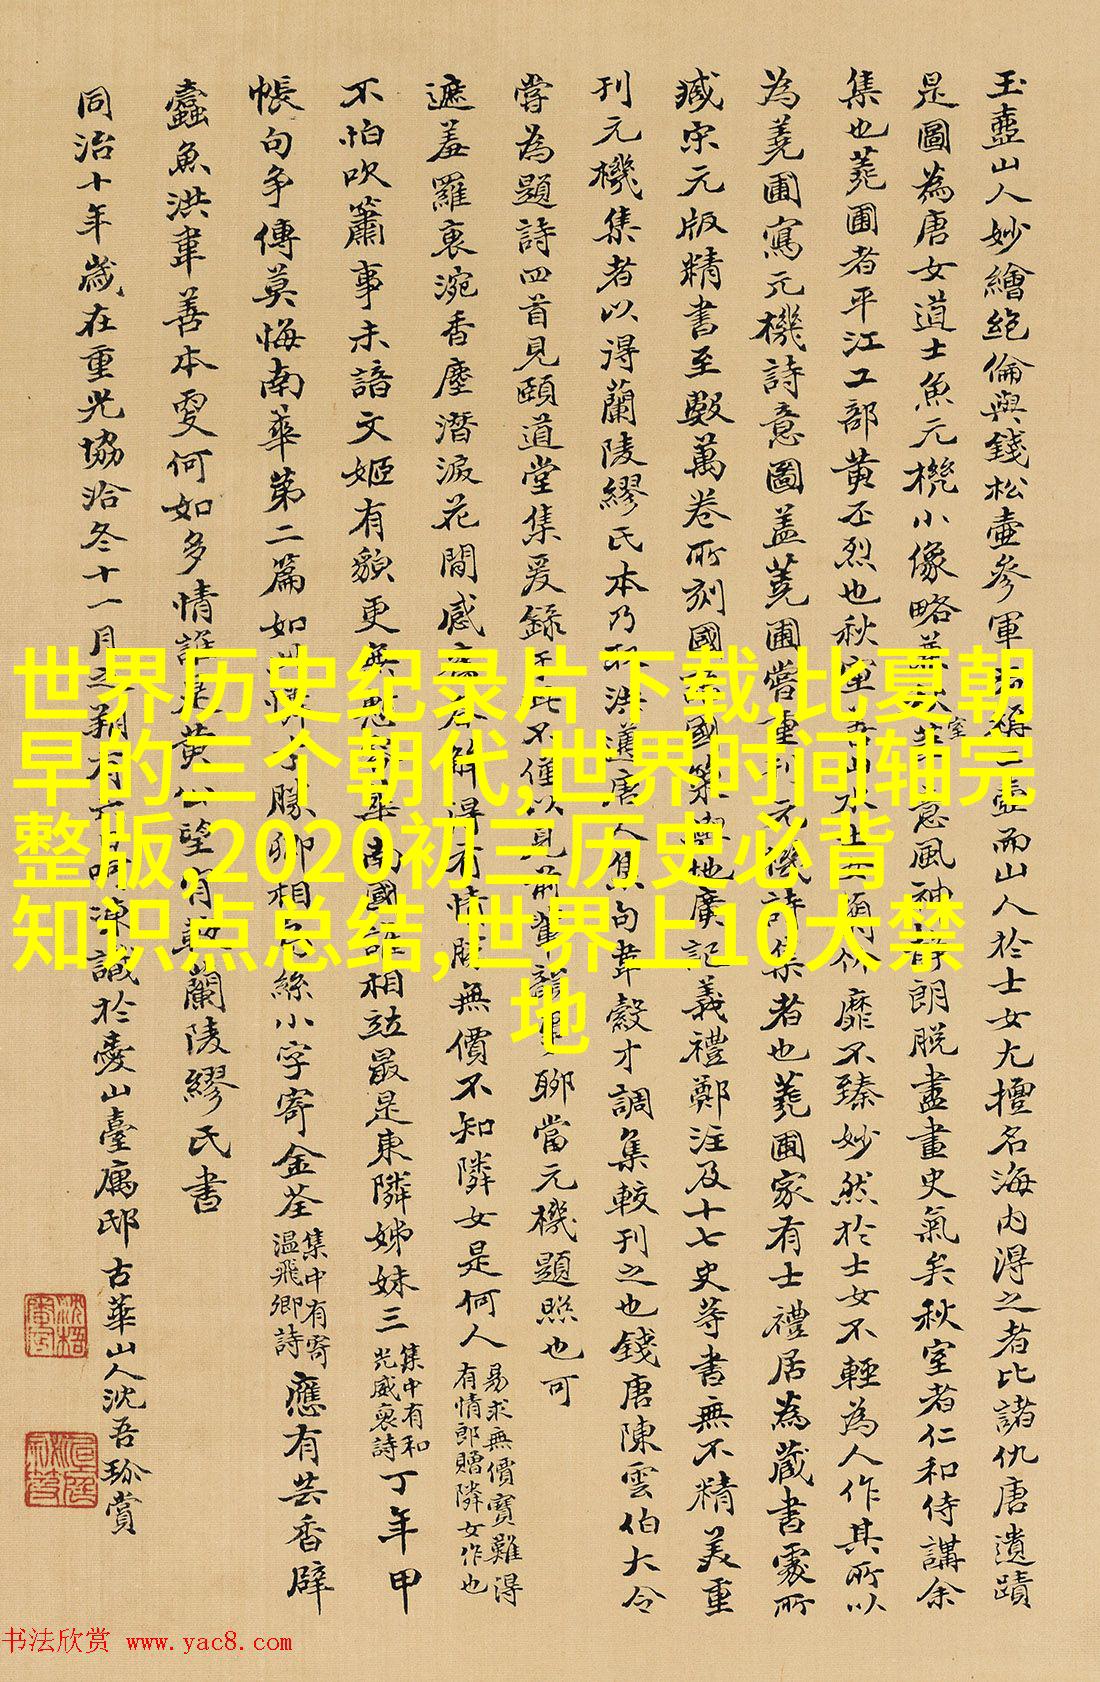 玉壺山人妙繪絕倫與錢松壺參軍稱二壺而山人於士女尤擅名海內得之者比諸仇唐遺蹟
是圖為唐女道士魚元機小像略意風神靜朗脫盡畫史氣矣秋室者仁和侍講余
集也蕘圃者平江工部黃丕烈也秋室山水士竹靡不臻妙然於士女不輕為人作其所以
為蕘圃寫元機詩意圖蓋蕘圃嘗重刊元機詩集者也蕘圃家有士禮居為藏書處所
臧宋元版精書至數萬卷所刻國語國策輿地廣記義禮鄭注及十七史等書無不精美重
刊元機集者以得蘭陵繆氏本乃取洪邁唐人集句韋縠才調集較刊之也錢唐陳雲伯大令
嘗為題詩四首見頤道堂集爰錄於此不僅以見前輩韻事聊當元機題照也可
遮羞羅裹涴香塵潛淚花間感解得有情勝無價不知隣女是何人
易求無價寶難得
有情郎贈隣女作也
不怕吹簫事未諳文姬有貌更無南國誰相竝最是東隣姊妹三
集中有和
光威裒詩
丁年甲
帳句争傳莫悔南華第二篇如絲小字寄金荃
集中有寄
温飛卿詩
應有芸香辟
蠹魚洪韋善本更何如多情誰是黄公望寫蘭陵繆氏書
同治十年歲在重光協洽冬十一月之朔識於臺寓邸古華山人沈吾珎賞
世界历史纪录片下载,比夏朝
早的三个朝代,世界时间轴完
整版,2020初三历史必背
知识点总结,世界上10大禁
地
书法欣赏 www.yac8.com